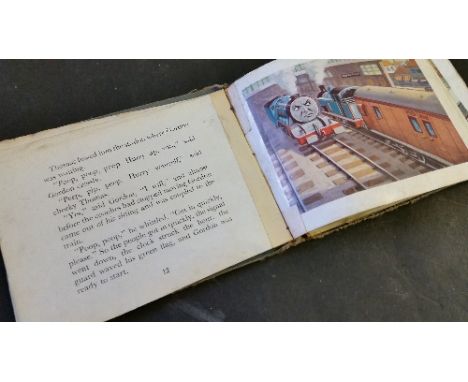 Thomas fussed into the station where Gordon
was waiting.
"Poop, poop, poop. Hurry up, you," said
Gordon crossly.
"Peep, pip, peep. Hurry yourself," said
cheeky Thomas.
"Yes," said Gordon, "I will," and almost
before the coaches had stopped moving Gordon
came out of his siding and was coupled to the
train.
"Poop, poop," he whistled. "Get in quickly,
please." So the people got in quickly, the signal
went down, the clock struck the hour, the
guard waved his green flag, and Gordon was
ready to start.
12